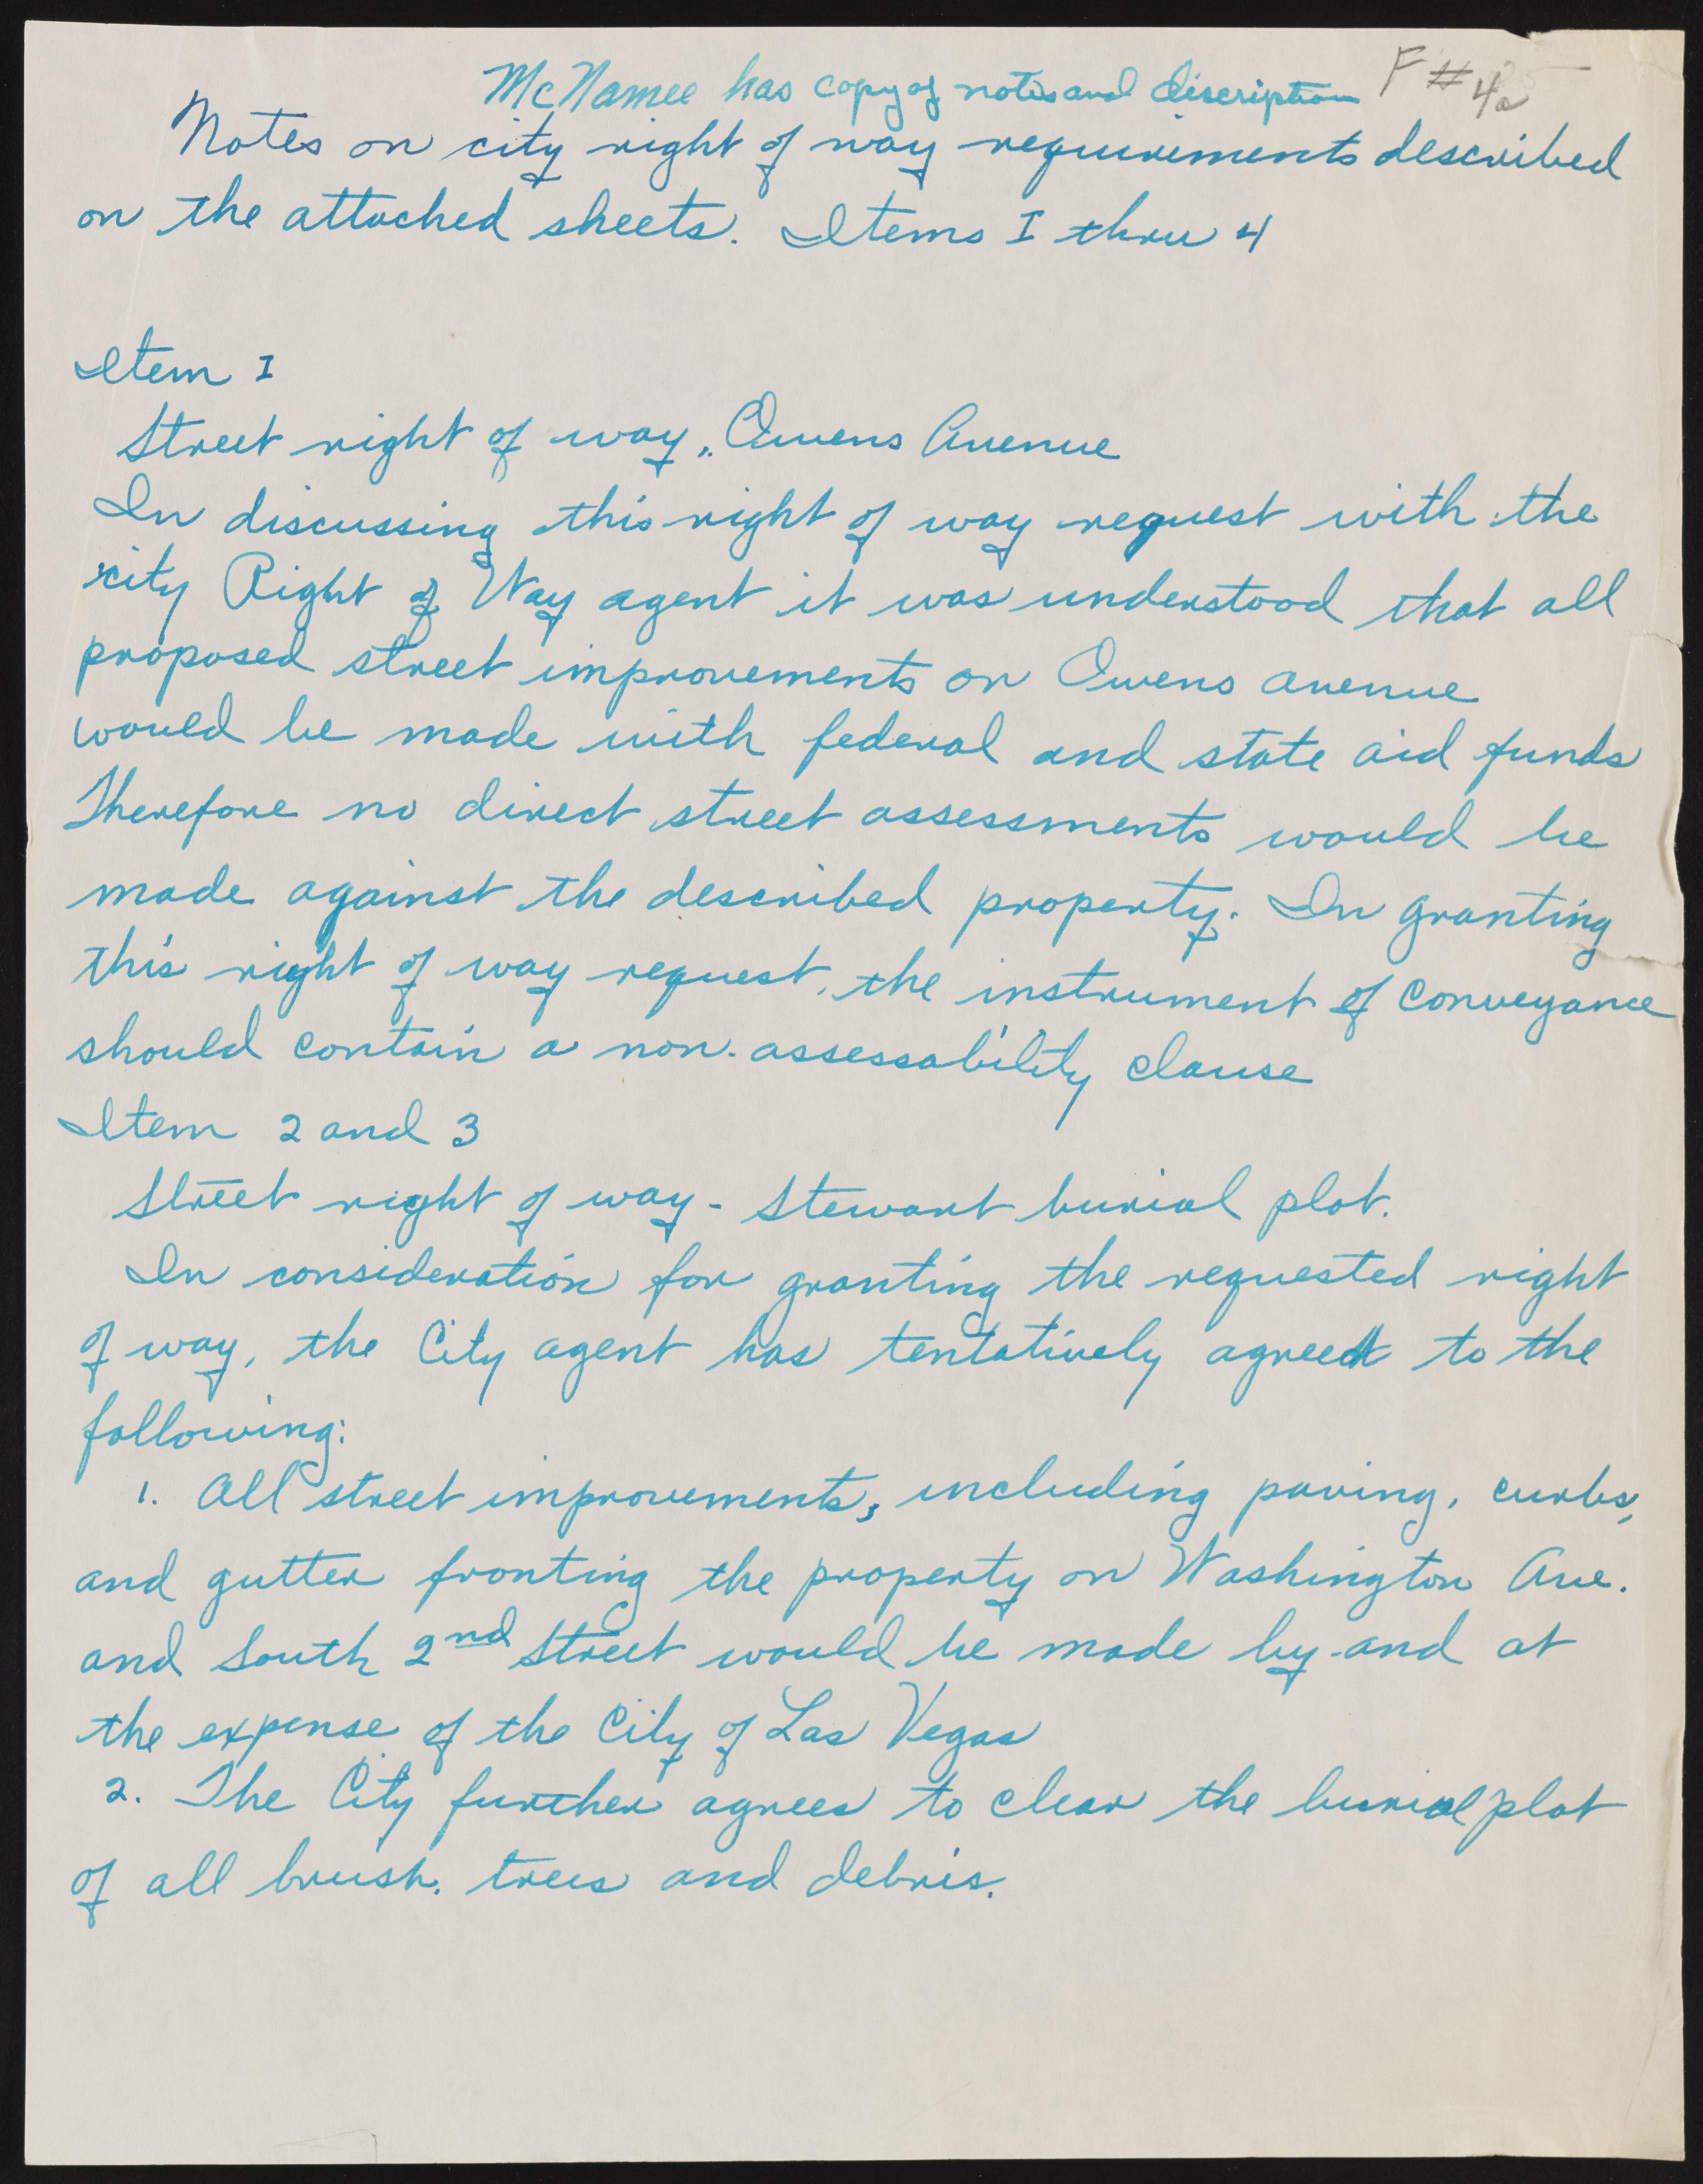 McNamee has copy of notes and discription F #4a
Notes on city right of way requirements described
on the attached sheets. Items I thru 4
Item I
Street right of way, Owens Avenue
In discussing this right of way request with the
city Right of Way agent it was understood that all
proposed street improvements on Owens avenue
would be made with federal and state aid funds
Therefore no direct street assessments would be
made against the described property. In granting
this right of way request, the instrument of conveyance
should contain a non-assessability clause
Item 2 and 3
Street right of way - Stewart burial plot.
In consideration for granting the requested right
of way, the City agent has tentatively agreed to the
following:
1. All street improvements, including paving, curbs,
and gutter fronting the property on Washington Ave.
and South 2nd Street would be made by and at
the expense of the City of Las Vegas
2. The City further agrees to clear the burial plot
of all brush, trees and debris.